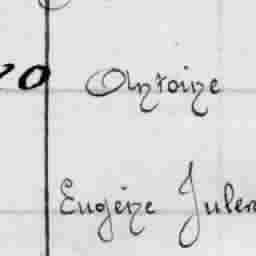 70 Antoine
Eugéne Jules